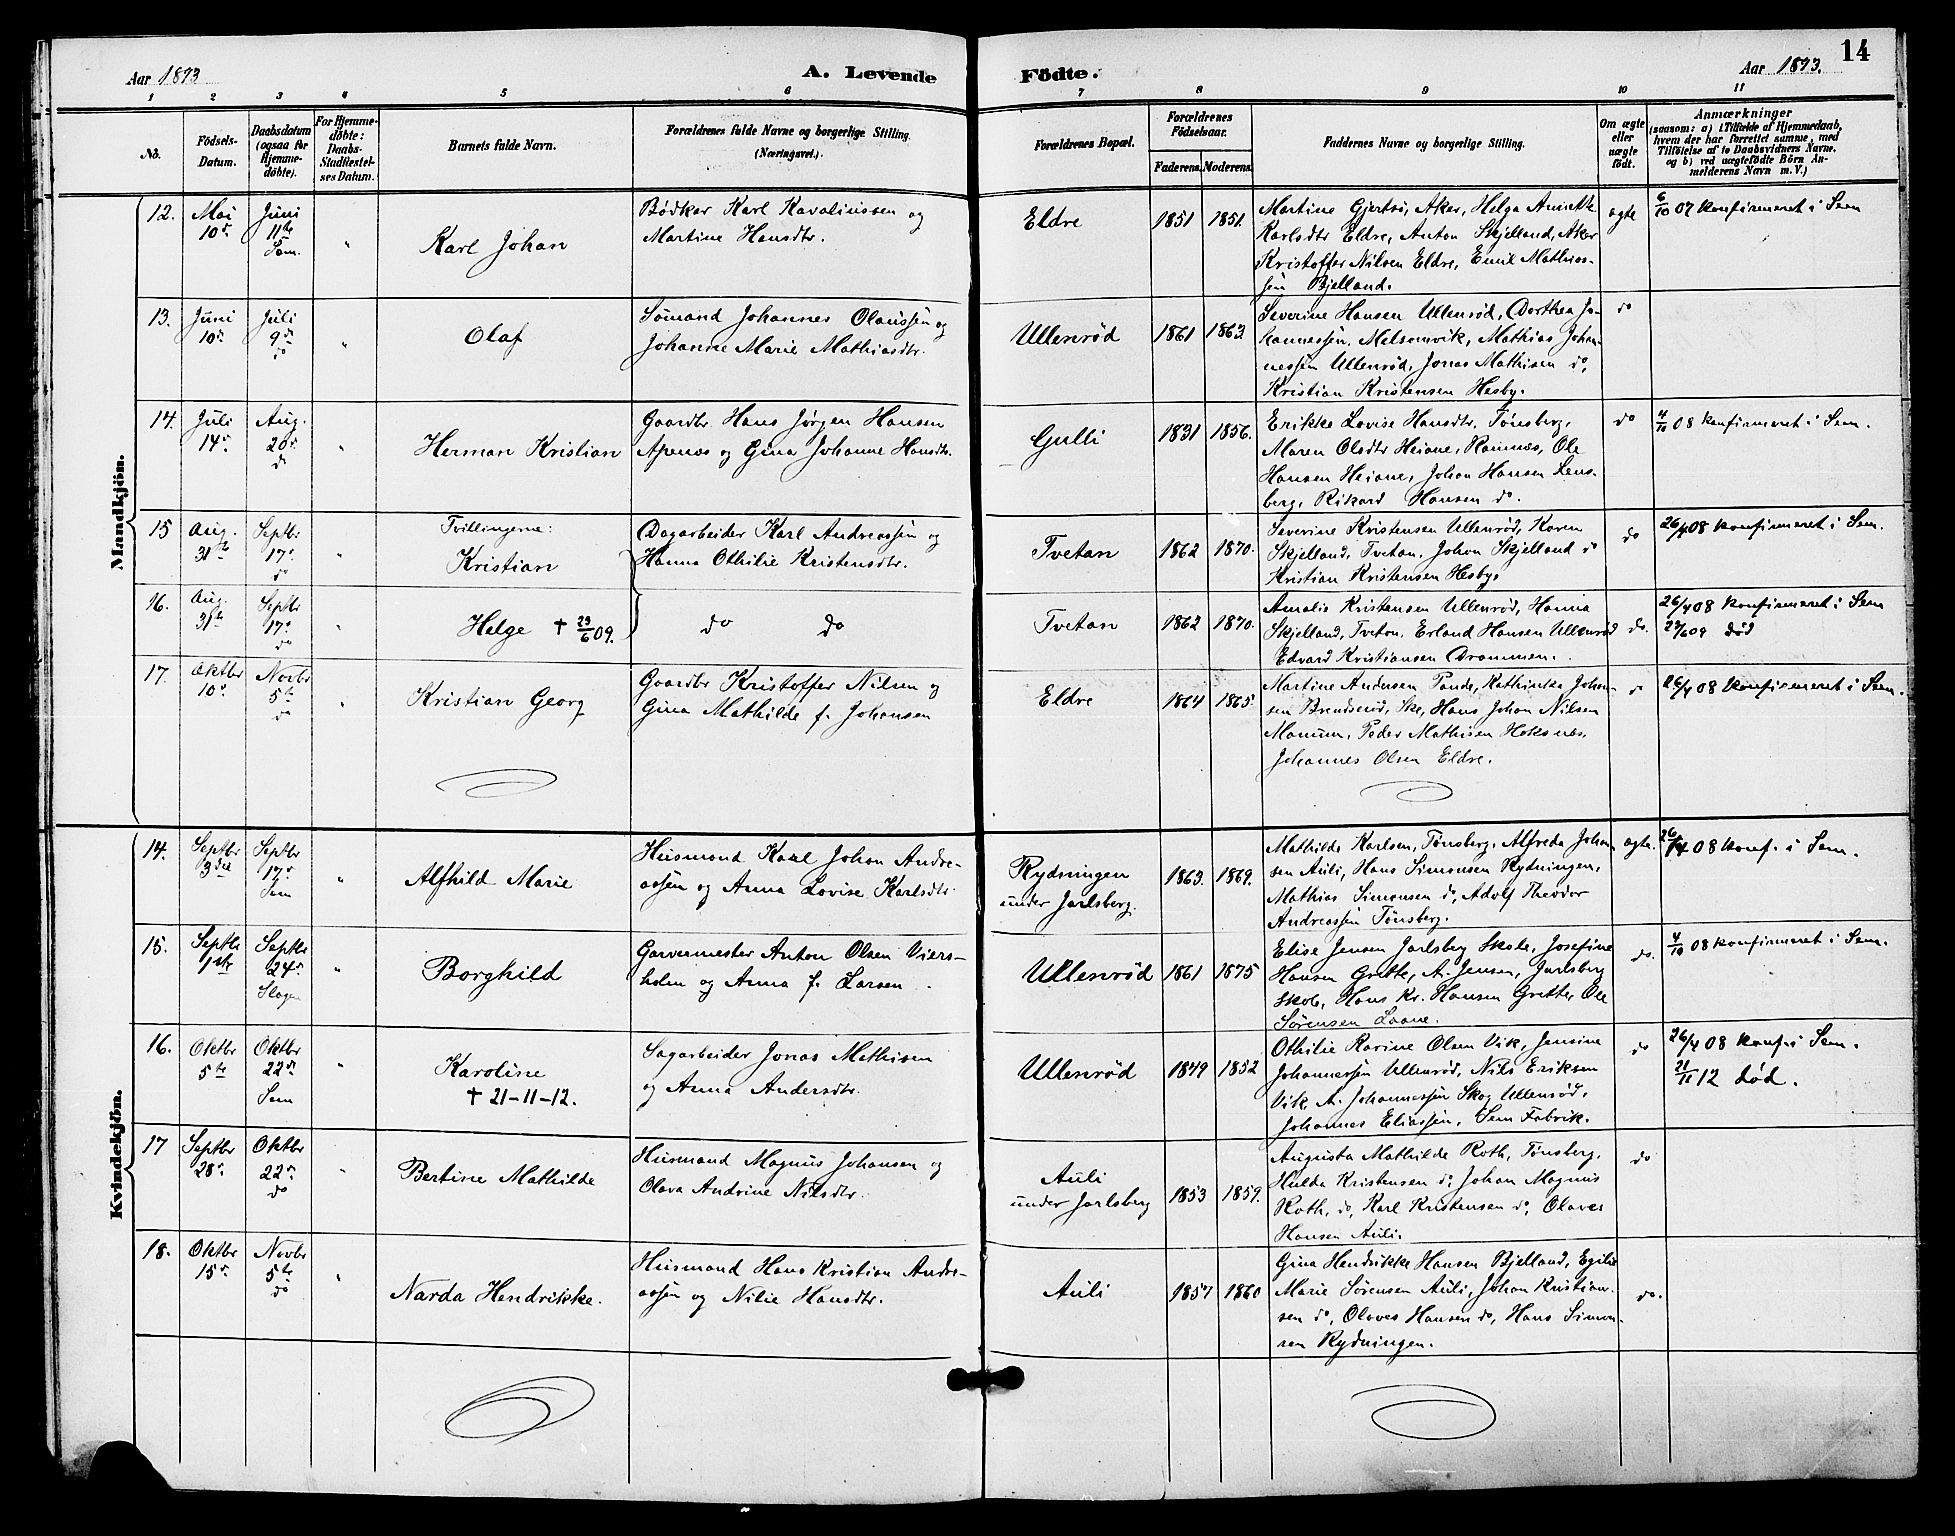 14
Aar 1893
A. Levende Födte.
Aar 1893.
1 2 3 4 5 6 7 8 9 10 11
No.
Födsels-Datum.
Daabsdatum (ogsaa for Hjemme-döbte).
For Hjemme-döbte: Daabs-Stadfæstel-ses Datum.
Barnets fulde Navn.
Forældrenes fulde Navne og borgerlige Stilling.
(Næringsvei.)
Forældrenes Bopæl.
Forældrenes Födselsaar.
Faderens. Moderens.
Faddernes Navne og borgerlige Stilling.
Om ægte eller uægte födt.
Anmærkninger
(saasom: a) i Tilfælde af Hjemmedaab,
hvem der har forrettet samme, med
Tilföielse af to Daabsvidners Navne,
og b) ved uægtefödte Börn An-
melderens Navn m. V.)
Mandkjön.
12. Mai 10de Juni 11te Sem. "
Karl Johan
Bødker Karl Kavaliussen og
Martine Hansdtr.
Eldre 1851 1851.
Martine Gjertsø, Aker, Helga Annette
Karlsdtr Eldre, Anton Skjelland, Aker
Kristoffer Nilsen Eldre, Emil Mathias-
sen Bjelland.
ægte
6/10 07 konfirmeret i Sem
13. Juni 10de Juli 9de do "
Olaf
Sømand Johannes Olaussen og
Johanne Marie Mathiasdtr.
Ullenrød 1861 1863.
Severine Hansen Ullenrød, Dorthea Jo-
hannessen, Melsomvik, Mathias Johan-
nessen Ullenrød, Jonas Mathisen do,
Kristian Kristensen Hesby.
do
14. Juli 14de Aug. 20de do "
Herman Kristian
Gaardbr. Hans Jørgen Hansen
Apenæs og Gina Johanne Hansdtr.
Gulli 1831 1856.
Erikke Lovise Hansdtr. Tønsberg,
Maren Olsdtr Heiane, Ramnæs, Ole
Hansen Heiane, Johan Hansen Løns-
berg, Rikard Hansen do.
do
4/10 08 konfirmeret i Sem.
15 Aug. 31te Septbr 17de do "
Tvillingerne:
Kristian
Dagarbeider Karl Andreassen og
Hanna Othilie Kristensdtr.
Tvetan 1862 1870.
Severine Kristensen Ullenrød, Karen
Skjelland, Tvetan, Johan Skjelland do
Kristian Kristensen Hesby.
do
26/4 08 konfirmeret i Sem.
16. Aug. 31te Septbr 17de do "
Helge † 23/6 09.
do do
Tvetan 1862 1870.
Amalie Kristensen Ullenrød, Hanna
Skjelland, Tvetan, Erland Hansen Ullenrød
Edvard Kristiansen Drammen.
do.
26/4 08 konfirmeret i Sem
23/6 09 død
17. Oktbr 10de Novbr 5te do "
Kristian Georg
Gaardbr Kristoffer Nilsen og
Gina Mathilde f. Johansen
Eldre 1864 1865.
Martine Andersen Pande, Kathinka Johan-
sen Brendserød, Ske, Hans Johan Nilsen
Manum, Peder Mathisen Hoksnæs,
Johannes Olsen Eldre.
do
26/4 08 konfirmeret i Sem.
Kvindekjön.
14. Septbr 3die Septbr 17de Sem "
Alfhild Marie
Husmand Karl Johan Andre-
assen og Anna Lovise Karlsdtr.
Rydningen
under Jarlsberg.
1863. 1869.
Mathilde Karlsen, Tønsberg, Alfreda Johan-
sen Auli, Hans Simonsen Rydningen,
Mathias Simonsen do, Adolf Theodor
Andreassen Tønsberg.
ægte.
26/4 08 konf. i Sem.
15. Septbr 1ste Septbr 24de Slagen "
Borghild
Garvermester Anton Olsen Viers-
holm og Anna f. Larsen.
Ullenrød 1861 1875
Elise Jensen Jarlsberg Skole, Josefine
Hansen Grette, A. Jensen, Jarlsberg
Skole, Hans Kr. Hansen Grette, Ole
Sørensen Laane.
do.
4/10 08 konfirmeret i Sem.
16. Oktbr 5te Oktbr 22de Sem "
Karoline
† 21-11-12.
Sagarbeider Jonas Mathisen
og Anna Andersdtr.
Ullenrød 1849 1852
Othilie Karine Olsen Vik, Jensine
Johannessen Ullenrød, Nils Eriksen
Vik, A. Johannessen Skog Ullenrød,
Johannes Eliassen, Sem Fabrik.
do
26/4 08 konf. i Sem.
21/11 12 død.
17 Septbr 28de Oktbr 22de do "
Bertine Mathilde
Husmand Magnus Johansen og
Olava Andrine Nilsdtr.
Auli
under Jarlsberg
1853 1859.
Augusta Mathilde Roth, Tønsberg,
Hulda Kristensen do, Johan Magnus
Roth, do, Karl Kristensen do, Olaves
Hansen Auli.
do
18. Oktbr 15de Novbr 5te do "
Narda Hendrikke.
Husmand Hans Kristian Andre-
assen og Nilie Hansdtr.
Auli 1857 1860
Gina Hendrikke Hansen Bjelland, Egilie
Marie Sørensen Auli, Johan Kristian-
sen do, Olaves Hansen do, Hans Simon-
sen Rydningen.
do.